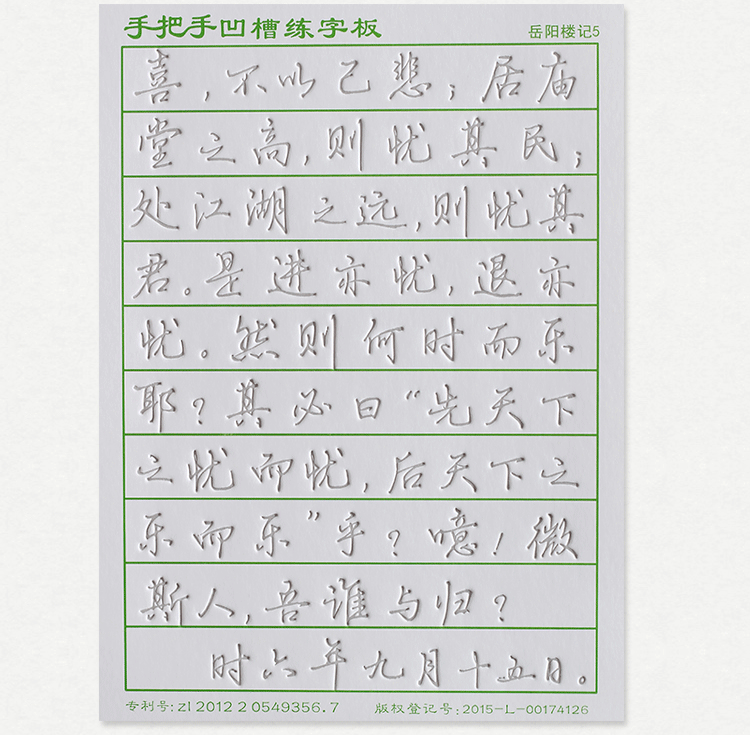 手把手凹槽练字板
岳阳楼记5
喜，不以己悲；居庙
堂之高，则忧其民；
处江湖之远，则忧其
君。是进亦忧，退亦
忧。然则何时而乐
耶？其必曰“先天下
之忧而忧，后天下之
乐而乐”乎？噫！微
斯人，吾谁与归？
时六年九月十五日。
专利号:zl 2012 2 0549356.7
版权登记号:2015-L-00174126